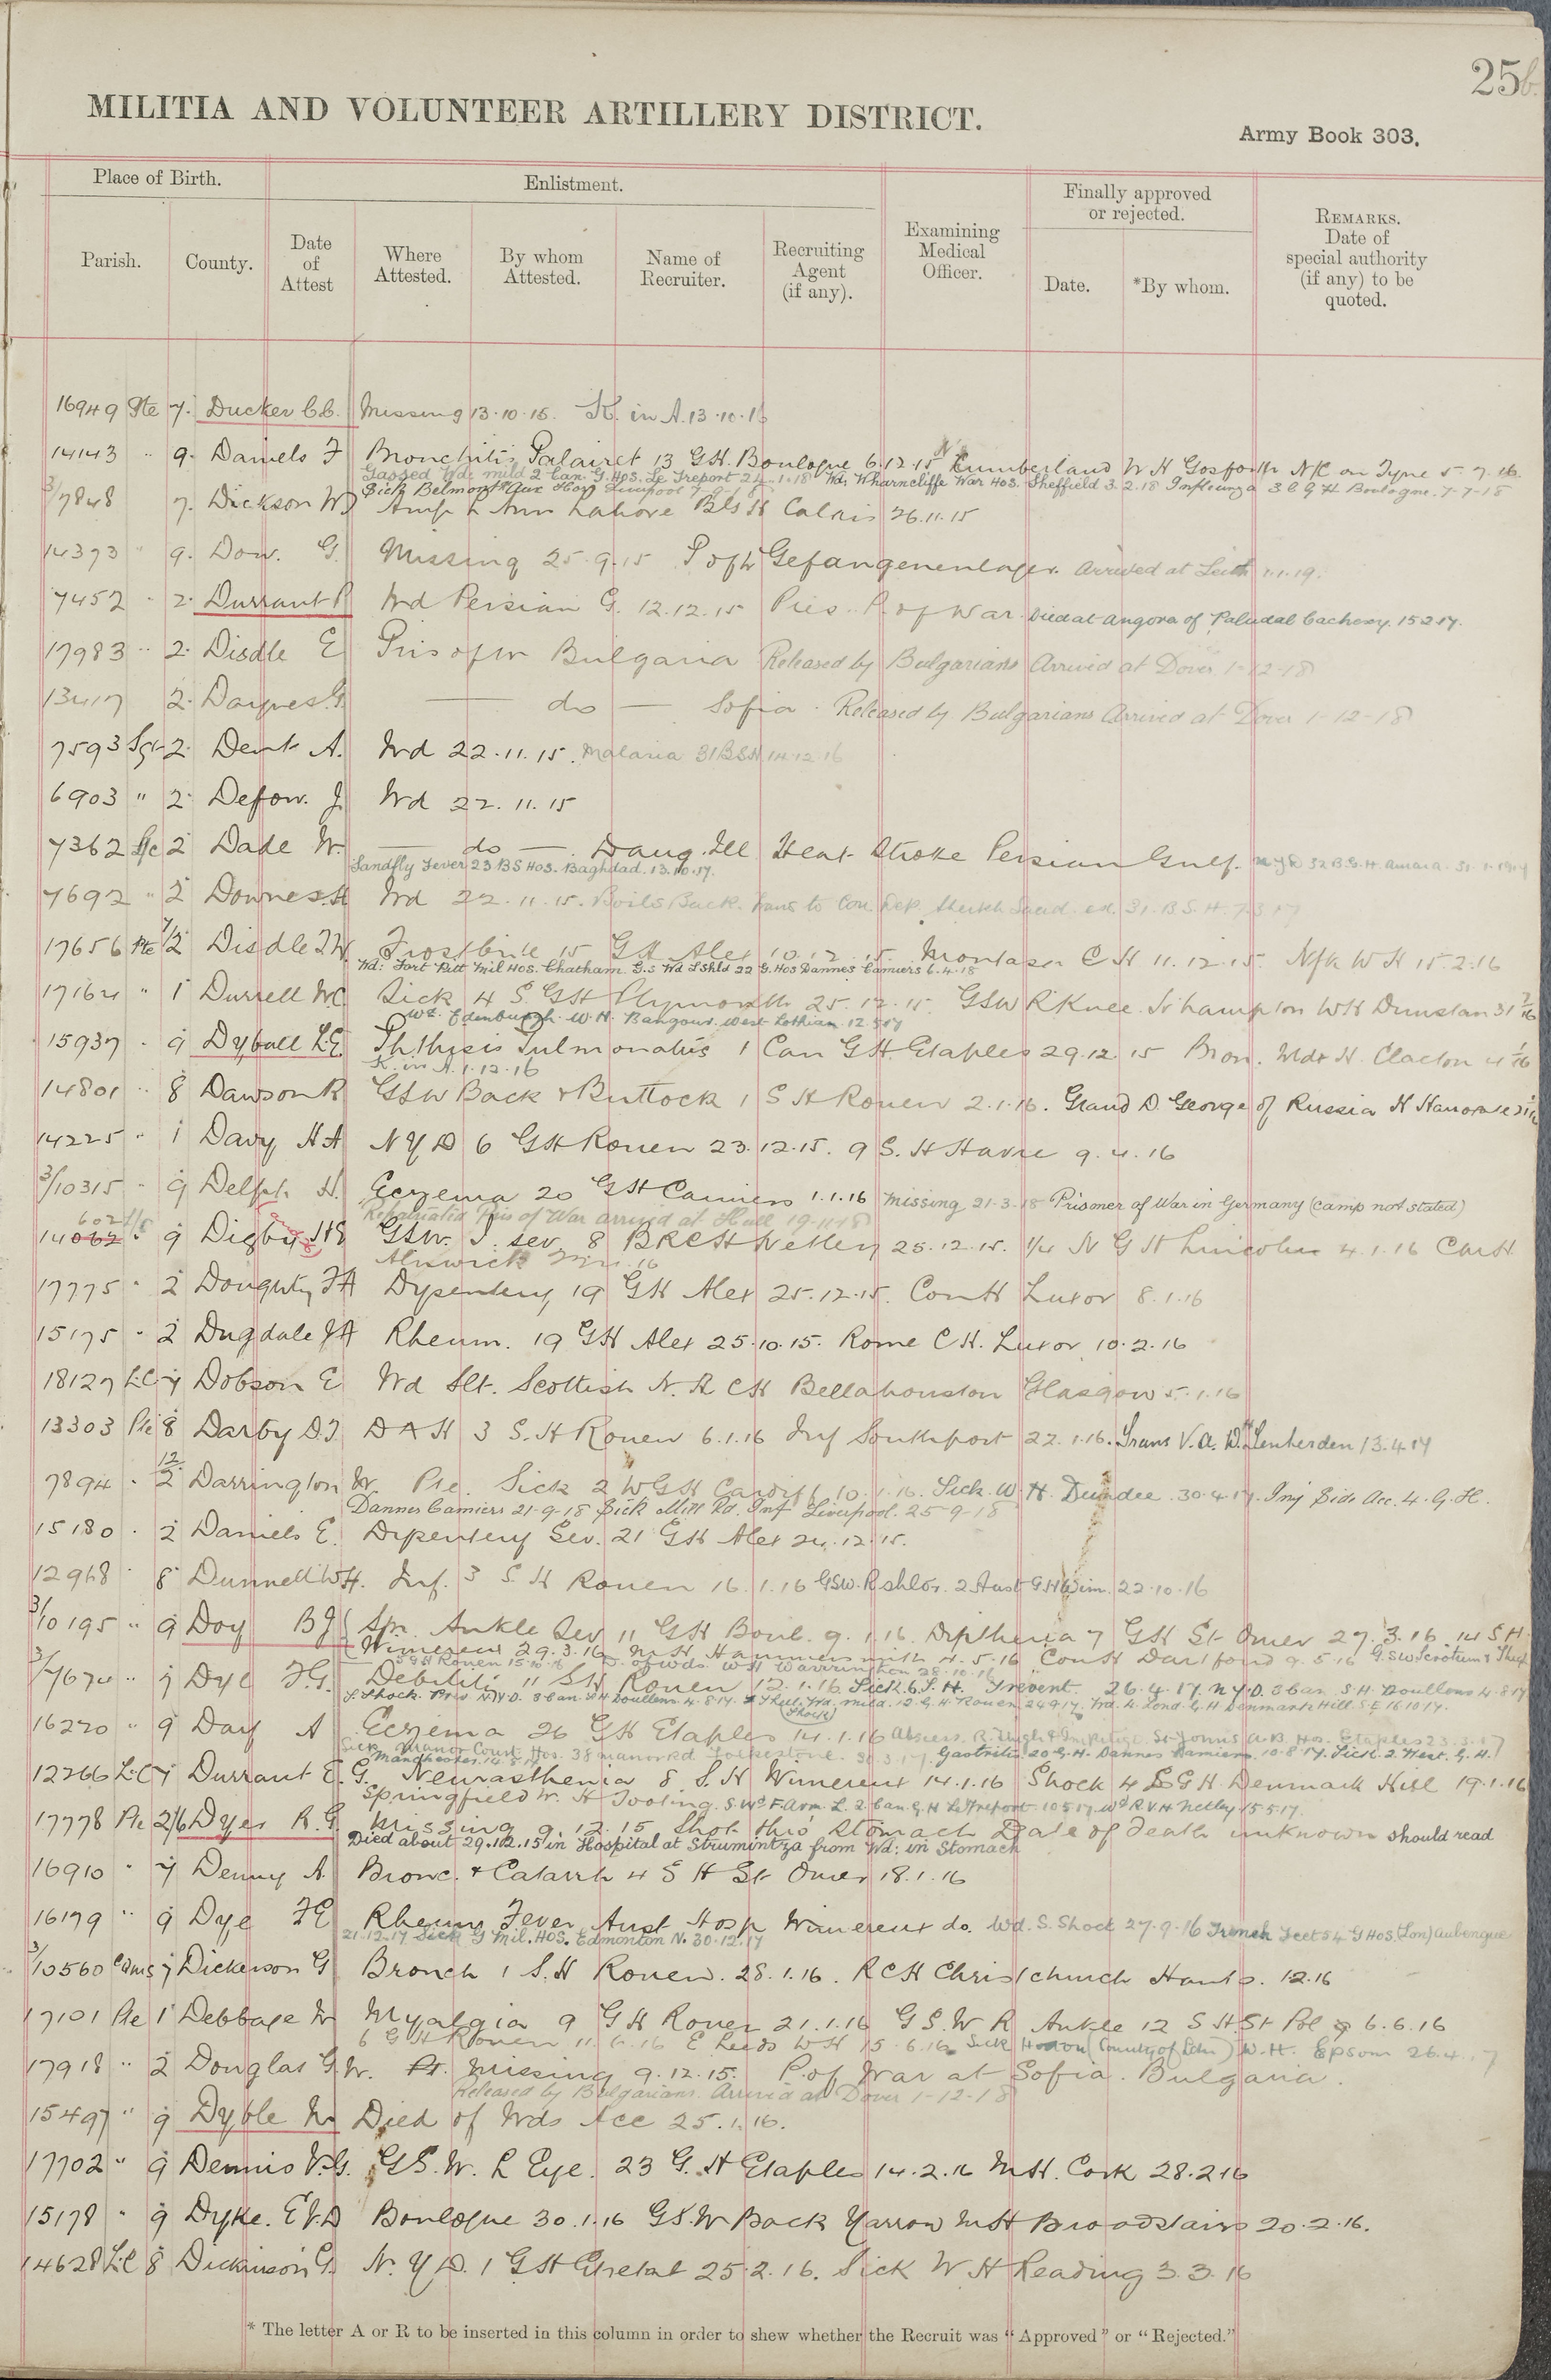 25b.
MILITIA AND VOLUNTEER ARTILLERY DISTRICT.
Army Book 303.
Place of Birth.
Enlistment.
Finally approved
or rejected.
Parish.
County.
Date
of
Attest
Where
Attested.
By whom
Attested.
Name of
Recruiter.
Recruiting
Agent
(if any).
Examining
Medical
Officer.
Date.
*By whom.
REMARKS.
Date of
special authority
(if any) to be
quoted.
16949 Pte 7. Ducker C.C. Missing 13.10.15. K. in A. 13.10.15
14143 " 9. Daniels F Bronchitis Palairet 13 G.H. Boulogne 6.12.15 Cumberland W H Gosforth N/C on Tyne 5.7.16
Gassed Wd: mild 2 Can. G. Hos. Le Treport 24.1.18 Wd: Wharncliffe War Hos. Sheffield 3.2.18 Influenza 3 C G H Boulogne. 7-7-18
Sick Belmont Aux Hosp Liverpool
3/7848 7. Dickson W Amp L Arm Lahore B G H Calais 26.11.15
14373 " 9. Dow. G. Missing 25.9.15 P of W Gefangenenlager. Arrived at Leith 1.1.19.
7452 " 2. Durrant P Wd Persian G. 12.12.15 Pris. P. of War. Died at Angora of Paludal Cachexy. 15.2.17.
17983 " 2. Disdle E Pris of W Bulgaria Released by Bulgarians Arrived at Dover 1-12-18
13417 2. Daynes. G. — do — Sofia. Released by Bulgarians Arrived at Dover 1-12-18
7593 Sgt 2. Dent A. Wd 22.11.15. Malaria 31 B S H 14.12.16
6903 " 2. Defow. J. Wd 22.11.15
7362 L/c 2 Dade W. — do —. Dang. Ill Heat Stroke Persian Gulf. N Y D 32 B.G.H. Amara.
Sandfly Fever 23 B S Hos. Baghdad. 13.10.17.
7692 " 2 Downes. H Wd 22.11.15. Boils Back. Trans to Con. Dep.
17656 Pte 7/2 Disdle F W. Frostbite 15 G H Alex 10.12.15. Montaza C H 11.12.15. Nfk W H 15.2.16
Wd: Fort Pitt Mil Hos. Chatham. G.S Wd L Shld 22 G. Hos Dannes Camiers 6.4.18
17164 " 1 Durrell W.C. Sick 4 S. G H Plymouth 25.12.15. GSW R Knee. N'hampton W H Dunstan 31
Wd. Edinburgh. W.H. Bangour. West Lothian. 12.5.17
15937 . 9 Dyball L.E. Phthisis Pulmonalis 1 Can G H Etaples 29.12.15 Bron. Mdx H. Clacton
K. in A. 1.12.16
14801 " 8 Dawson R GSW Back & Buttock 1 S H Rouen 2.1.16. Grand D. George of Russia H Harrogate
14225 " 1 Davy H A N Y D 6 G H Rouen 23.12.15. 9 S. H Havre 9.4.16
3/10315 " 9 Delph H. Eczema 20 G H Camiers 1.1.16 Missing 21.3.18 Prisoner of War in Germany (camp not stated)
Repatriated Pris of War arrived at Hull 19-11-18
6024
14062 " 9 Digby H E GSW. I. sev. 8 B R C H Netley 25.12.15. 1/4 N G H Lincoln 4.1.16 Con H
Alnwick
17775 " 2 Doughty F A Dysentery 19 G H Alex 25.12.15. Con H Luxor 8.1.16
15175 " 2 Dugdale J A Rheum. 19 G H Alex 25.10.15. Rome C H. Luxor 10.2.16
18127 L.C. 7 Dobson E Wd Slt. Scottish N. R C H Bellahouston Glasgow 5.1.16
13303 Pte 8 Darby D.J. D A H 3 S. H Rouen 6.1.16 Inf Southport 22.1.16. Trans V.A.D. Tenterden 13.4.17
7894 . 12/2 Darrington W. Pte. Sick 2 W G H Cardiff 10.1.16. Sick. W.H. Dundee. 30.4.17. Inj Side Acc. 4. G. H.
Dannes Camiers 21-9-18 Sick Mill Rd. Inf Liverpool. 25-9-18
15180 . 2 Daniels E. Dysentery Sev. 21 G H Alex 24.12.15.
12968 " 8 Dunnell W H. Inf. 3 S H Rouen 16.1.16 GSW. R shldr. 2 Aust G H Wim. 22.10.16
3/10195 " 9 Doy B J Spr. Ankle Sev 11 G H Boul. 9.1.16. Diptheria 7 G H St Omer 27.3.16 14 S H
Wimereux 29.3.16. M H Hammersmith 4.5.16 Con H Dartford 9.5.16 G.S.W Scrotum & Thigh
3/7674 " 7 Dye F.G. Debility 11 S H Rouen 12.1.16 Sick 6. S. H. Frevent. 26.4.17. N.Y.D. 3 Can. S.H. Doullens 4.8.17
16270 " 9 Day A Eczema 26 G H Etaples 14.1.16
Sick Manor Court Hos. 38 Manor Rd Folkestone. 30.3.17. Gastritis 20 G.H. Dannes Camiers. 10.8.17. Sick. 2 West. G.H.
Manchester
12266 L.C. 7 Durrant E. G. Neurasthenia 8 S. H Wimereux 14.1.16 Shock 4 L G H Denmark Hill 19.1.16
Springfield W. H Tooting. S. Wd. F. arm. L. 2 Can. G. H Le Treport 10.5.17. Wd R V H Netley 15.5.17.
17778 Pte 2/6 Dyer R.G. Missing 9.12.15 Shot thro' Stomach Date of death unknown should read
Died about 29.12.15 in Hospital at Strumintza from Wd: in Stomach
16910 " 7 Denny A Bronc. & Catarrh 4 S H St Omer 18.1.16
16179 " 9 Dye F E Rheum. Fever. Aust Hosp Wimereux do. Wd. S. Shock 27.9.16 Trench Feet 54 G Hos. (Lon) Aubengue
21.12.17 Sick G Mil. Hos. Edmonton N. 30.12.17
3/10560 Cams 7 Dickerson G Bronch 1 S. H Rouen. 28.1.16. R C H Christchurch Hants. 12.16
17101 Pte 1 Debbage W Myalgia 9 G H Rouen 21.1.16 G S. W R Ankle 12 S H. St Pol 6.6.16
6 G H Rouen 11.6.16 E Leeds W H 15.6.16. Sick Horton (County of Ldn) W. H. Epsom 26.4.17
17918 " 2 Douglas G W. Missing 9.12.15. P. of War at Sofia. Bulgaria.
Released by Bulgarians. Arrived at Dover 1-12-18
15497 " 9 Dyble W Died of Wds Acc 25.1.16.
17702 " 9 Dennis V.G. G S. W. L Eye. 23 G. H Etaples 14.2.16 M H. Cork 28.2.16
15178 " 9 Dyke. E V. D Boulogne 30.1.16 G S. W Back Yarrow M H Broadstairs 20.2.16.
14628 L.C 8 Dickinson G. N. Y D. 1 G H Etretat 25.2.16. Sick W H Reading 3.3.16
* The letter A or R to be inserted in this column in order to shew whether the Recruit was "Approved" or "Rejected."